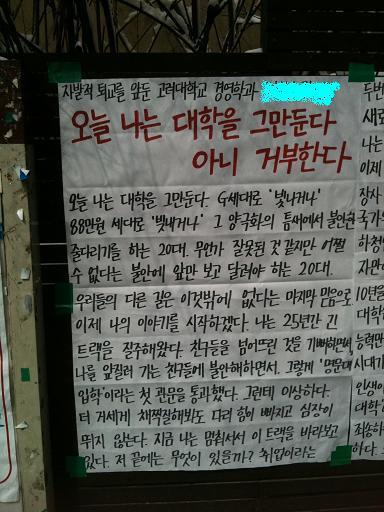 자발적 퇴교를 앞둔 고려대학교 경영학과
오늘 나는 대학을 그만둔다
아니 거부한다
오늘 나는 대학을 그만둔다. G세대로 '빛나거나'
88만원 세대로 '빚내거나' 그 양극화의 틈새에서 불안한
줄타리기를 하는 20대. 무언가 잘못된 것 같지만 어쩔
수 없다는 불안에 앞만 보고 달려야 하는 20대.
우리들의 다른 길은 이것밖에 없다는 마지막 믿음으로.
이제 나의 이야기를 시작하겠다. 나는 25년간 긴
트랙을 질주해왔다. 친구들을 넘어뜨린 것을 기뻐하면서,
나를 앞질러 가는 친구들에 불안해하면서. 그렇게 '명문대
입학'이라는 첫 관문을 통과했다. 그런데 이상하다.
더 거세게 채찍질해봐도 다리 힘이 빠지고 심장이
뛰지 않는다. 지금 나는 멈춰서서 이 트랙을 바라보고
있다. 저 끝에는 무엇이 있을까? 취업이라는
두번
새로
나는
이제
장사
국가와
하청
자만
10년을
대학
능력만
시대가
인생
대학
죄송하
하다.